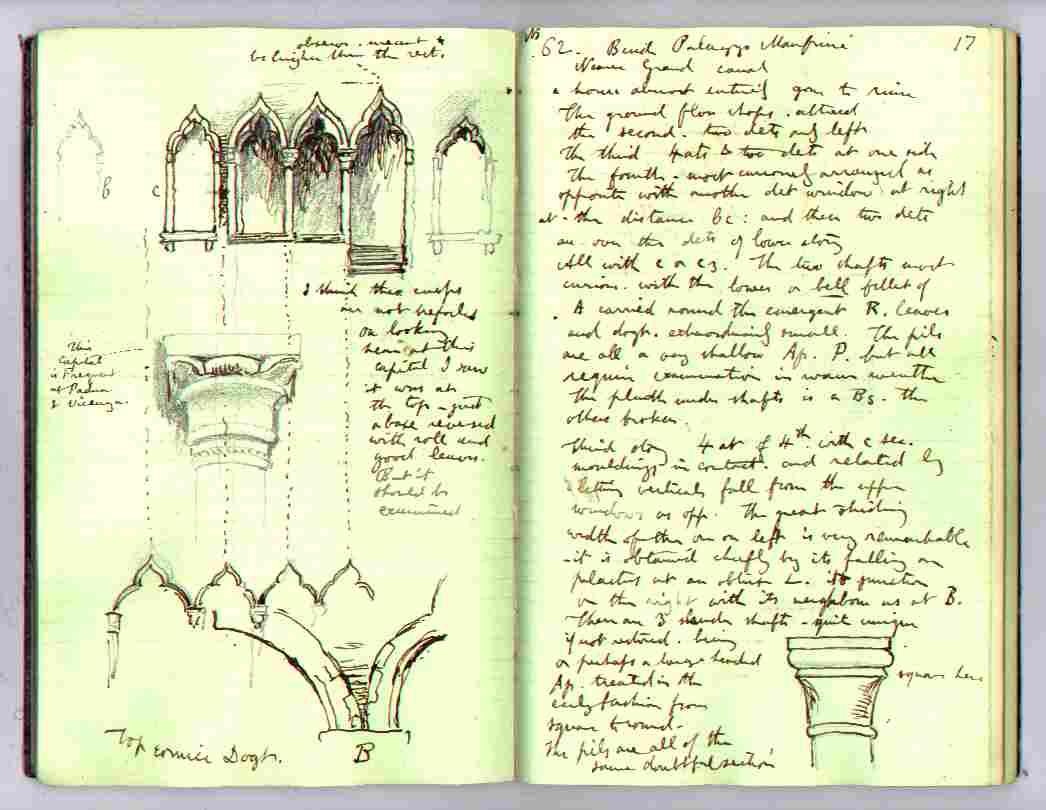 be higher than the rest.
b
c
I think these cusps
are not
on looking
near at this
capital I saw
it was at
the top - just
a base reversed
with roll and
good leaves.
But it
should be
examined
This
Capital
is Frequent
at Padua
& Vicenza.
Top cornice Dogt.
B
No
62. Palazzo Manfrini
17
Nearer Grand canal
a house almost entirely gone to ruin
The ground floor shops. altered
the second. two dets only left
The third 4 ats & two dets at one side
The fourth - most curiously arranged as
opposite with another det window at right
at - the distance bc: and then two dets
are over the dets of lower story
All with c or c3. The two shafts most
curious. with the lower or bell fillet of
A carried round the emergent R. leaves
and dogt. extraordinarily small. The pils
are all a very shallow Ap. P. but all
require examination in warm weather
The plinth under shafts is a B3. the
others broken.
Third story 4 at of 4th. with c sec.
mouldings in contact. and related by
letting verticals fall from the upper
windows as opp. The great
width of the one on left is very remarkable
- it is obtained chiefly by its falling on
at an ∠. its junction
on the right with its neighbour as at B.
There are 3 slender shafts - quite unique
if not restored. being
or perhaps a large headed
Ap. treated in the
early fashion from
square to round.
The pils are all of the
same doubtful section
square here